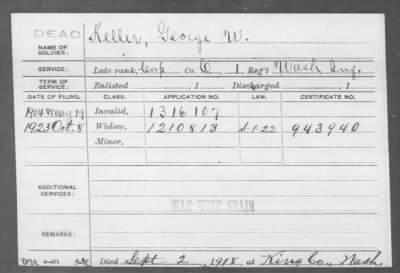 DEAD
NAME OF SOLDIER: Keller, George W.
SERVICE: Late rank, Corp Co. O, 1 Reg't Wash Inf.
TERM OF SERVICE: Enlisted , 1 Discharged , 1
DATE OF FILING. CLASS. APPLICATION NO. LAW. CERTIFICATE NO.
1904 May 19 Invalid, 1316107
1923 Oct. 8 Widow, 1210813 S-1-22 943940
Minor,
ADDITIONAL SERVICES:
WAR WITH SPAIN
REMARKS:
Died Sept 2, 1918, at King Co., Wash.